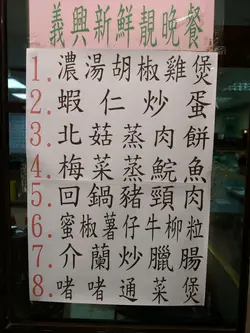 義興新鮮靚晚餐
1.濃湯胡椒雞煲
2.蝦仁炒蛋
3.北菇蒸肉餅
4.梅菜蒸鯇魚
5.回鍋豬頸肉
6.蜜椒薯仔牛柳粒
7.介蘭炒臘腸
8.啫啫通菜煲